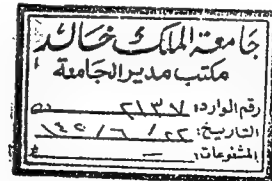 جامعة الملك خالد
مكتب مدير الجامعة
رقم الوارد: ٢١٣٧
التاريخ: ٢٢ / ٦ / ١٤٢
المشفوعات: